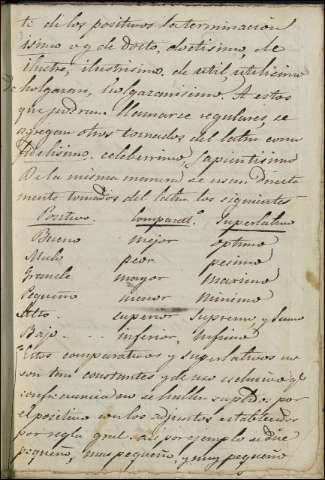 te de los positivos la terminacion
isimo v. g. de docto, doctisimo, de
ilustre, ilustrisimo, de util, utilisimo
de holgazan, holgazanisimo. A estos
que podran llamarse regulares, se
agregan otros tomados del latin como
fidelisimo, celeberrimo, sapientisimo
De la misma manera se usan directa
mente tomados del latin los siguientes
Positivo. Comparat.º Superlativo
Bueno mejor optimo
Malo peor pesimo
Grande mayor Maximo
Pequeño menor Minimo
Alto. superior Supremo y Sumo
Bajo.... inferior, Infimo
Estos comparativos y superlativos no
son tan constantes, que no
con frecuencia no se hallen suplidos por
el positivo con los adjuntos establecidos
por regla gral. asi por ejemplo se dice
pequeño, mas pequeño, y muy pequeño